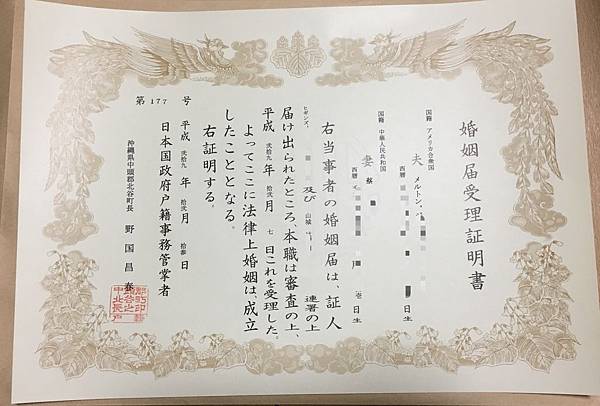 婚姻届受理証明書
国籍 アメリカ合衆国
夫 メルトン、
西暦 日生
国籍 中華人民共和国
妻 蔡
西暦 壱日生
右当事者の婚姻届は、証人
ヒギンズ、 及び 山城 連署の上
届け出られたところ、本職は審査の上、
平成 弐拾九 年 拾弐 月 七 日これを受理した。
よってここに法律上婚姻は、成立
したこととなる。
右証明する。
第 177 号
平成 弐拾九 年 拾弐 月 拾参 日
日本国政府戸籍事務管掌者
沖縄県中頭郡北谷町長 野国昌春